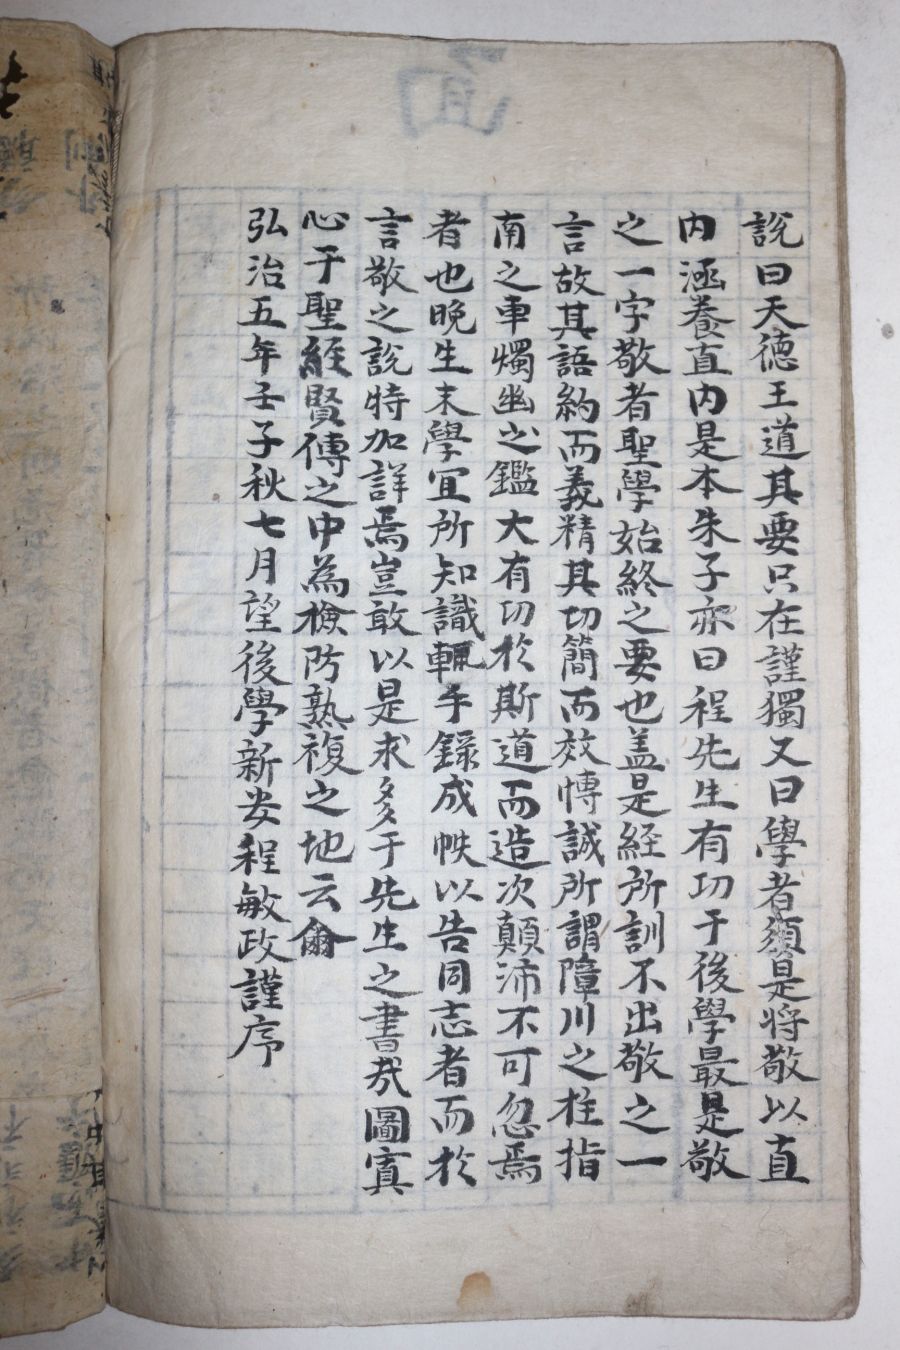 說曰天德王道其要只在謹獨又曰學者須是將敬以直
内涵養直内是本朱子亦曰程先生有功于後學最是敬
之一字敬者聖學始終之要也盖是経所訓不出敬之一
言故其語約而義精其切簡而效愽誠所謂障川之柱指
南之車燭幽之鑑大有切於斯道而造次顛沛不可忽焉
者也晚生末學宜所知識輒手錄成帙以告同志者而於
言敬之說特加詳焉豈敢以是求多于先生之書㢤圖寘
心于聖經賢傳之中為檢防熟複之地云爾
弘治五年壬子秋七月望後學新安程敏政謹序